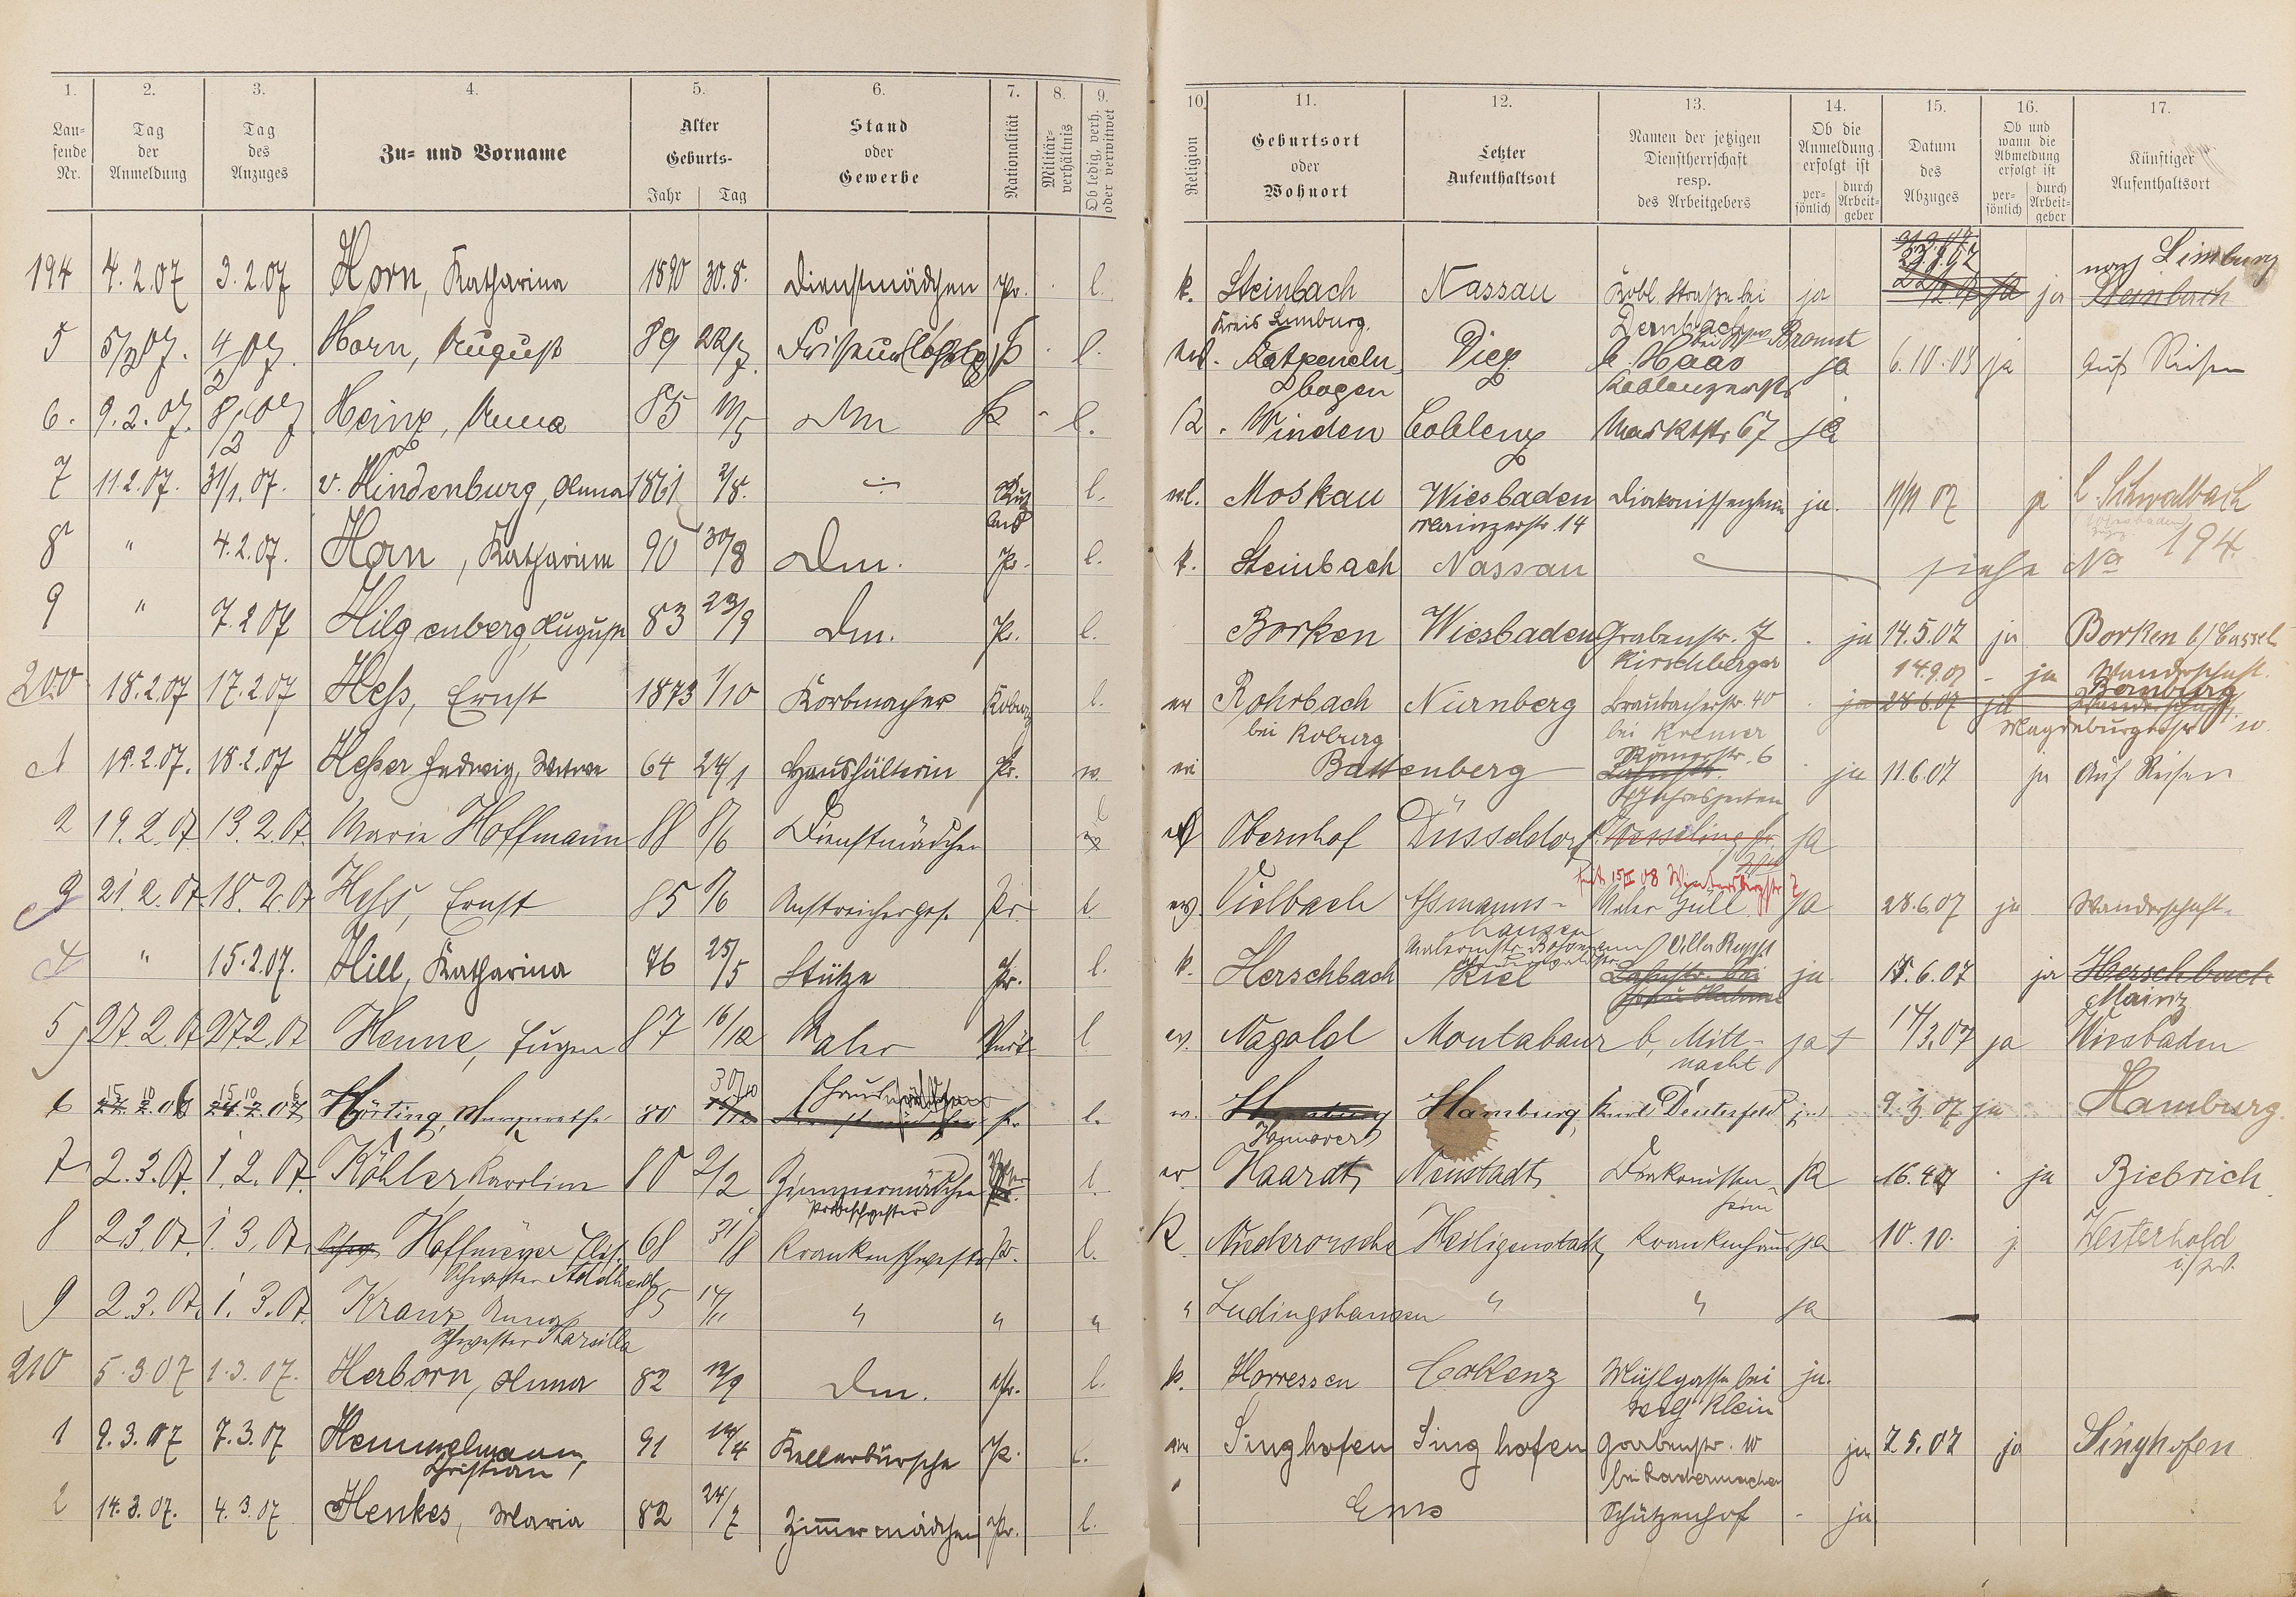 1. 2. 3. 4. 5. 6. 7. 8. 9.
Lau-
fende
Nr.
Tag
der
Anmeldung
Tag
des
Anzuges
Zu- und Vorname
Alter
Geburts-
Jahr Tag
Stand
oder
Gewerbe
Nationalität
Militär-
verhältnis
Ob ledig, verh.
oder verwitwet
10. 11. 12. 13. 14. 15. 16. 17.
Religion
Geburtsort
oder
Wohnort
Letzter
Aufenthaltsort
Namen der jetzigen
Dienstherrschaft
resp.
des Arbeitgebers
Ob die
Anmeldung
erfolgt ist
per-
sönlich
durch
Arbeit-
geber
Datum
des
Abzuges
Ob und
wann die
Abmeldung
erfolgt ist
per-
sönlich
durch
Arbeit-
geber
Künftiger
Aufenthaltsort
194 4.2.07 3.2.07 Horn, Katharina 1890 30.8. Dienstmädchen Pr. l. k. Steinbach Nassau Kobl. Straße bei ja ja nach Limburg
Steinbach
Kreis Limburg.
5 5/2 07. 4/2 07. Horn, August 89 22/7 l. Katzeneln
bogen Diez b. Haas ja 6.10.08 ja Auf Reisen
6. 9.2.07. 8/2 07 Heinz, Anna 85 Dm l. k. Winden Coblenz Marktstr 67 ja
7 11.2.07. 31/1.07. v. Hindenburg, Anna 1861 2/8. l. Moskau Wiesbaden Diakonissenheim ja. 11/11 07 ja l. Schwalbach
Mainzerstr. 14
8 " 4.2.07. Horn, Katharina 90 30/8 Dm. Pr. l. k. Steinbach Nassau siehe No 194
9 " 7.2.07 Hilgenberg, August 83 23/9 Dm. Pr. l. Borken Wiesbaden Grabenstr. 7 ja 14.5.07 ja Borken b/Cassel
Kirschberger
200 18.2.07 17.2.07 Heß, Ernst 1873 1/10 Korbmacher Koburg l. ev Rohrbach Nürnberg Braubacherstr. 40 ja 28.6.07 ja
14.9.07 - ja Wanderschaft.
Bamberg
bei Koburg bei Kremer
1 19.2.07. 18.2.07 Heßer Hedwig, Witwe 64 24/1 Haushälterin Pr. w. Battenberg Römerstr. 6 ja 11.6.07 ja Auf Reisen
2 19.2.07 13.2.07. Marie Hoffmann 88 8/6 Dienstmädchen l Obernhof Düsseldorf ja
3 21.2.07. 18.2.07 Heß, Ernst 85 Anstreichergeh. Pr. l ev Vielbach Aßmanns-
hausen Maler Güll ja 28.6.07 ja Wanderschaft.
4 " 15.2.07. Hill, Katharina 76 25/5 Stütze Pr. l. k. Herschbach Kiel Villa Rupp ja 15.6.07 ja Herschbach
Mainz
5 27.2.07 27.2.07 Henne, Eugen 87 16/12 Maler Würt l ev. Nagold Montabaur b. Mitt-
nacht ja 14/3.07 ja Wiesbaden
6 Hörting, Margarethe 80 Dienstmädchen Pr l. Hamburg Hamburg, ja 9.3.07 ja Hamburg.
Hannover
7 2.3.07. 1.2.07. Köhler Karoline 80 2/2 Zimmermädchen l. ev. Haardt, Neustadt, Diakonissen-
heim ja 16.4.07 ja Biebrich.
Probeschwester
8 2.3.07. 1.3.07. Hoffmeyer Elis. 68 31/8 Krankenschwester Pr. l. K. Niederorschel Heiligenstadt, Krankenhaus ja 10.10. j. Westerhold
i/W.
Schwester Adelheid
9 2.3.07. 1.3.07. Kranz Anna 85 14/11 " " " " Ludingshausen " " ja —
210 5.3.07 1.3.07. Herborn, Anna 82 12/9 Dm. Pr. l. k. Horressen Coblenz Mühlgasse bei ja.
Klein
1 9.3.07 7.3.07 Hemmelmann, 91 14/4 Kellerbursche Pr. l. Singhofen Singhofen Grabenstr. 10 ja 7.5.07 ja Singhofen
Christian
bei Radermacher
2 14.3.07. 4.3.07 Henkes, Maria 82 24/7 Zimmermädchen Pr. l. Ems Schützenhof - ja